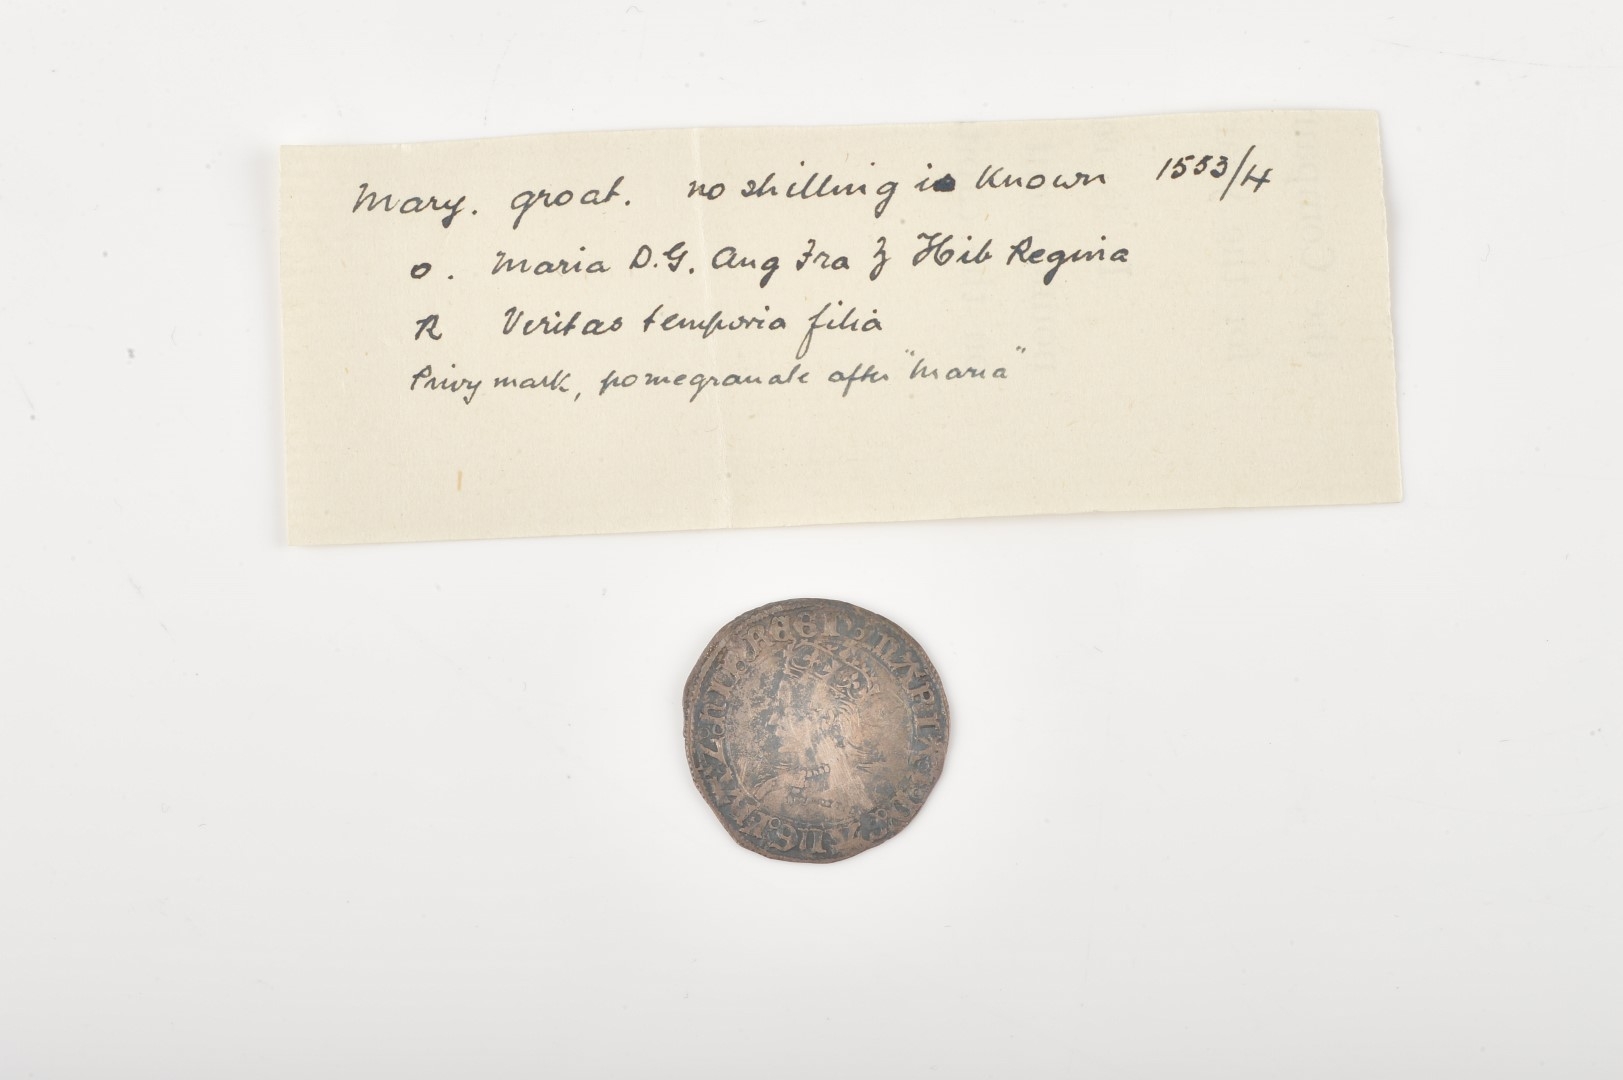 Mary. groat. no shilling is known 1553/4
O. Maria D.G. Ang Fra Z Hib Regina
R Veritas temporis filia
Privy mark, pomegranate after "Maria"
MARIA